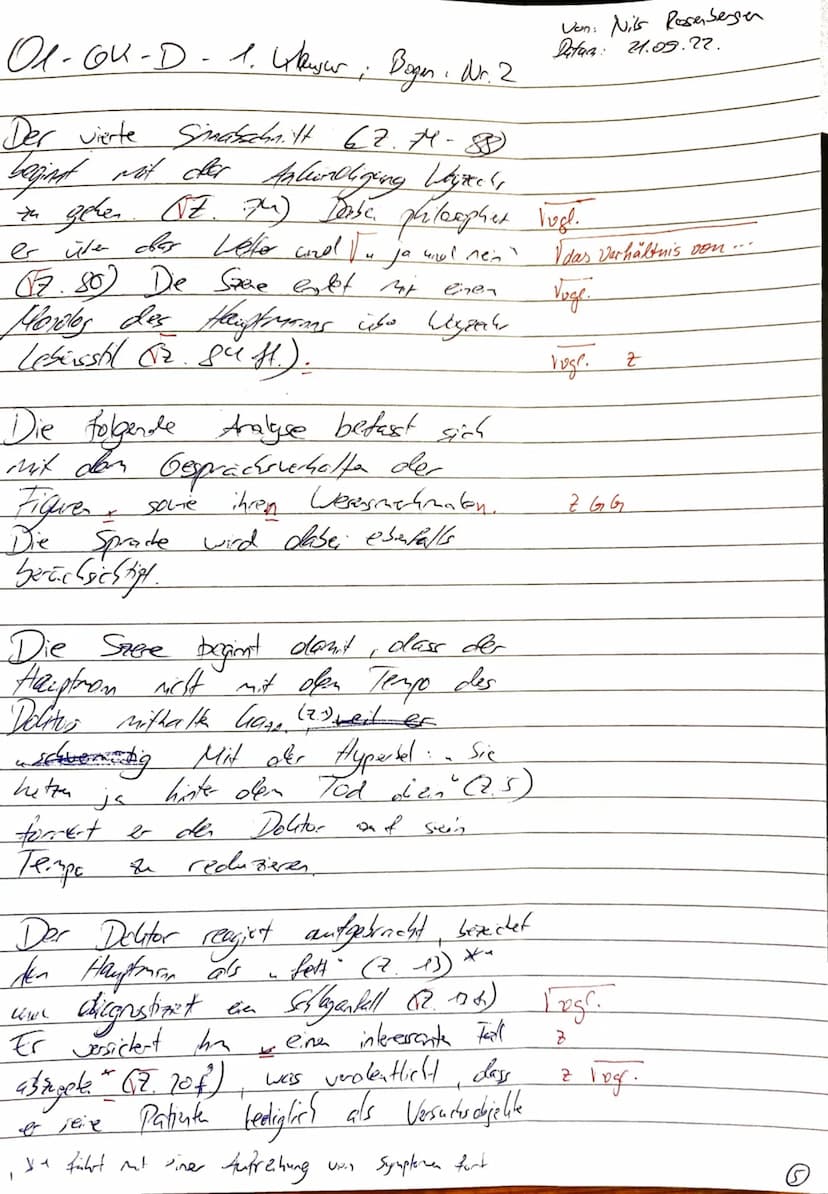 Von: Nils Rosenbergen
Datum: 21.09.22.
Q1-GK-D-1. Klausur, Bogen Nr. 2
Der vierte Sinnabschnitt (Z. 74-88)
beginnt mit der Ankündigung Woyzecks
zu gehen. (√Z. 74) Dabei philosophiert √vgl.
er über das Wetter und √„ja und nein“ √das Verhältnis von...
(√Z. 80) Die Szene endet mit einen √vgl.
Monolog des Hauptmanns über Woyzecks
Lebensstil (√Z. 84 ff.). √vgl. Z
Die folgende Analyse befasst sich
mit dem Gesprächsverhalten der
Figuren, sowie ihren Wesensmerkmalen. Z G G
Die Sprache wird dabei ebenfalls
berücksichtigt.
Die Szene beginnt damit, dass der
Hauptmann nicht mit dem Tempo des
Doktors mithalten kann. (Z.3) weil er
Mit der Hyperbel: „Sie
hetzen ja hinter dem Tod drein“ (Z.5)
fordert er den Doktor auf sein
Tempo zu reduzieren.
Der Doktor reagiert aufgebracht, bezeichnet
den Hauptmann als „fett“ (Z. 13) **
und diagnostiziert ein Schlaganfall (√Z. ) √vgl.
Er versichert ihm „einen interessanten Fall Z
abzugeben“ (√Z. 20f), was verdeutlicht, dass Z √vgl.
er seine Patienten lediglich als Versuchsobjekte
** führt mit einer Aufreihung von Symptomen fort
5